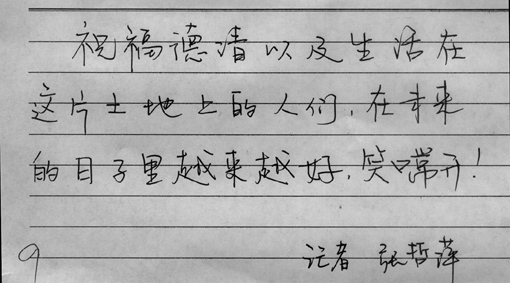 祝福德清以及生活在
这片土地上的人们,在未来
的日子里越来越好,笑口常开!
记者 张哲萍
9